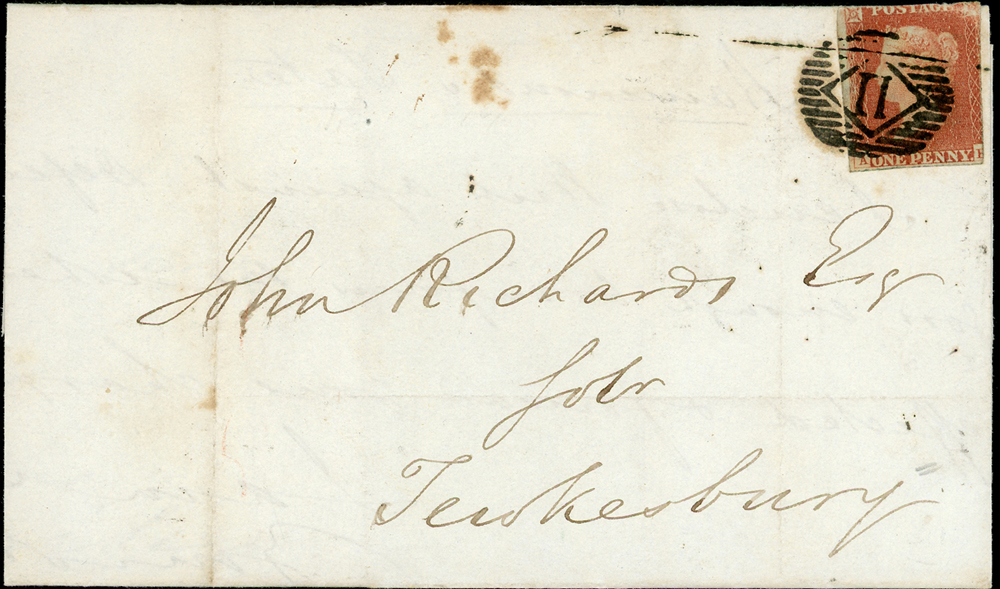 POSTAGE
II
ONE PENNY
John Richards Esqr
Solr
Tewkesbury